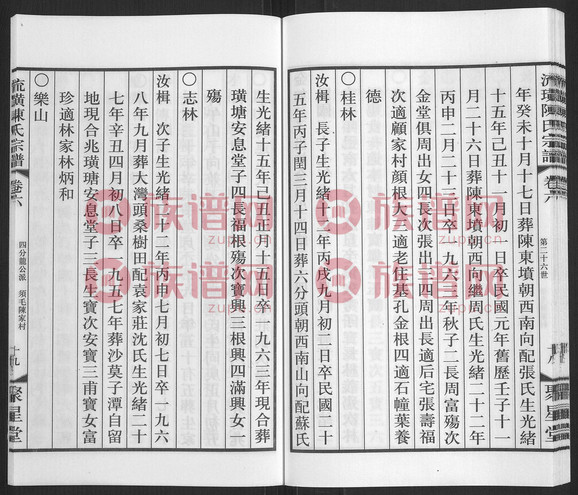 流璜陳氏宗譜
卷六
第二十六世
聚星堂
年癸未十月十七日葬陳東墳朝西南向配張氏生光緒
十五年己丑十一月初一日卒民國元年舊歷壬子十一
月二十六日葬陳東墳朝西向繼周氏生光緒二十二年
丙申二月二十三日卒一九六一年秋子二長周富殤次
金堂俱周出女四長次張出三四周出長適后宅張壽福
次適顧家村顔根大三適老住基孔金根四適石幢葉養
德
○桂林
汝楫 長子生光緒十二年丙戌九月初二日卒民國二十
五年丙子閏三月十四日葬六分頭朝西南山向配蘇氏
生光緒十五年己丑正月十五日卒一九六三年現合葬
璜塘安息堂子四長福根殤次寶興三根興四滿興女一
殤
○志林
汝楫 次子生光緒二十二年丙申七月初七日卒一九六
八年九月葬大灣頭桑樹田配袁家莊沈氏生光緒二十
七年辛丑四月初八日卒一九五七年葬沙莫子潭自留
地現合兆璜塘安息堂子三長生寶次安寶三甫寶女富
珍適林家林炳和
○樂山
流璜陳氏宗譜
卷六
四分龍公派 須毛陳家村
十九
聚星堂
族谱网
zupu.cn
族谱网
zupu.cn
族谱网
zupu.cn
族谱网
zupu.cn